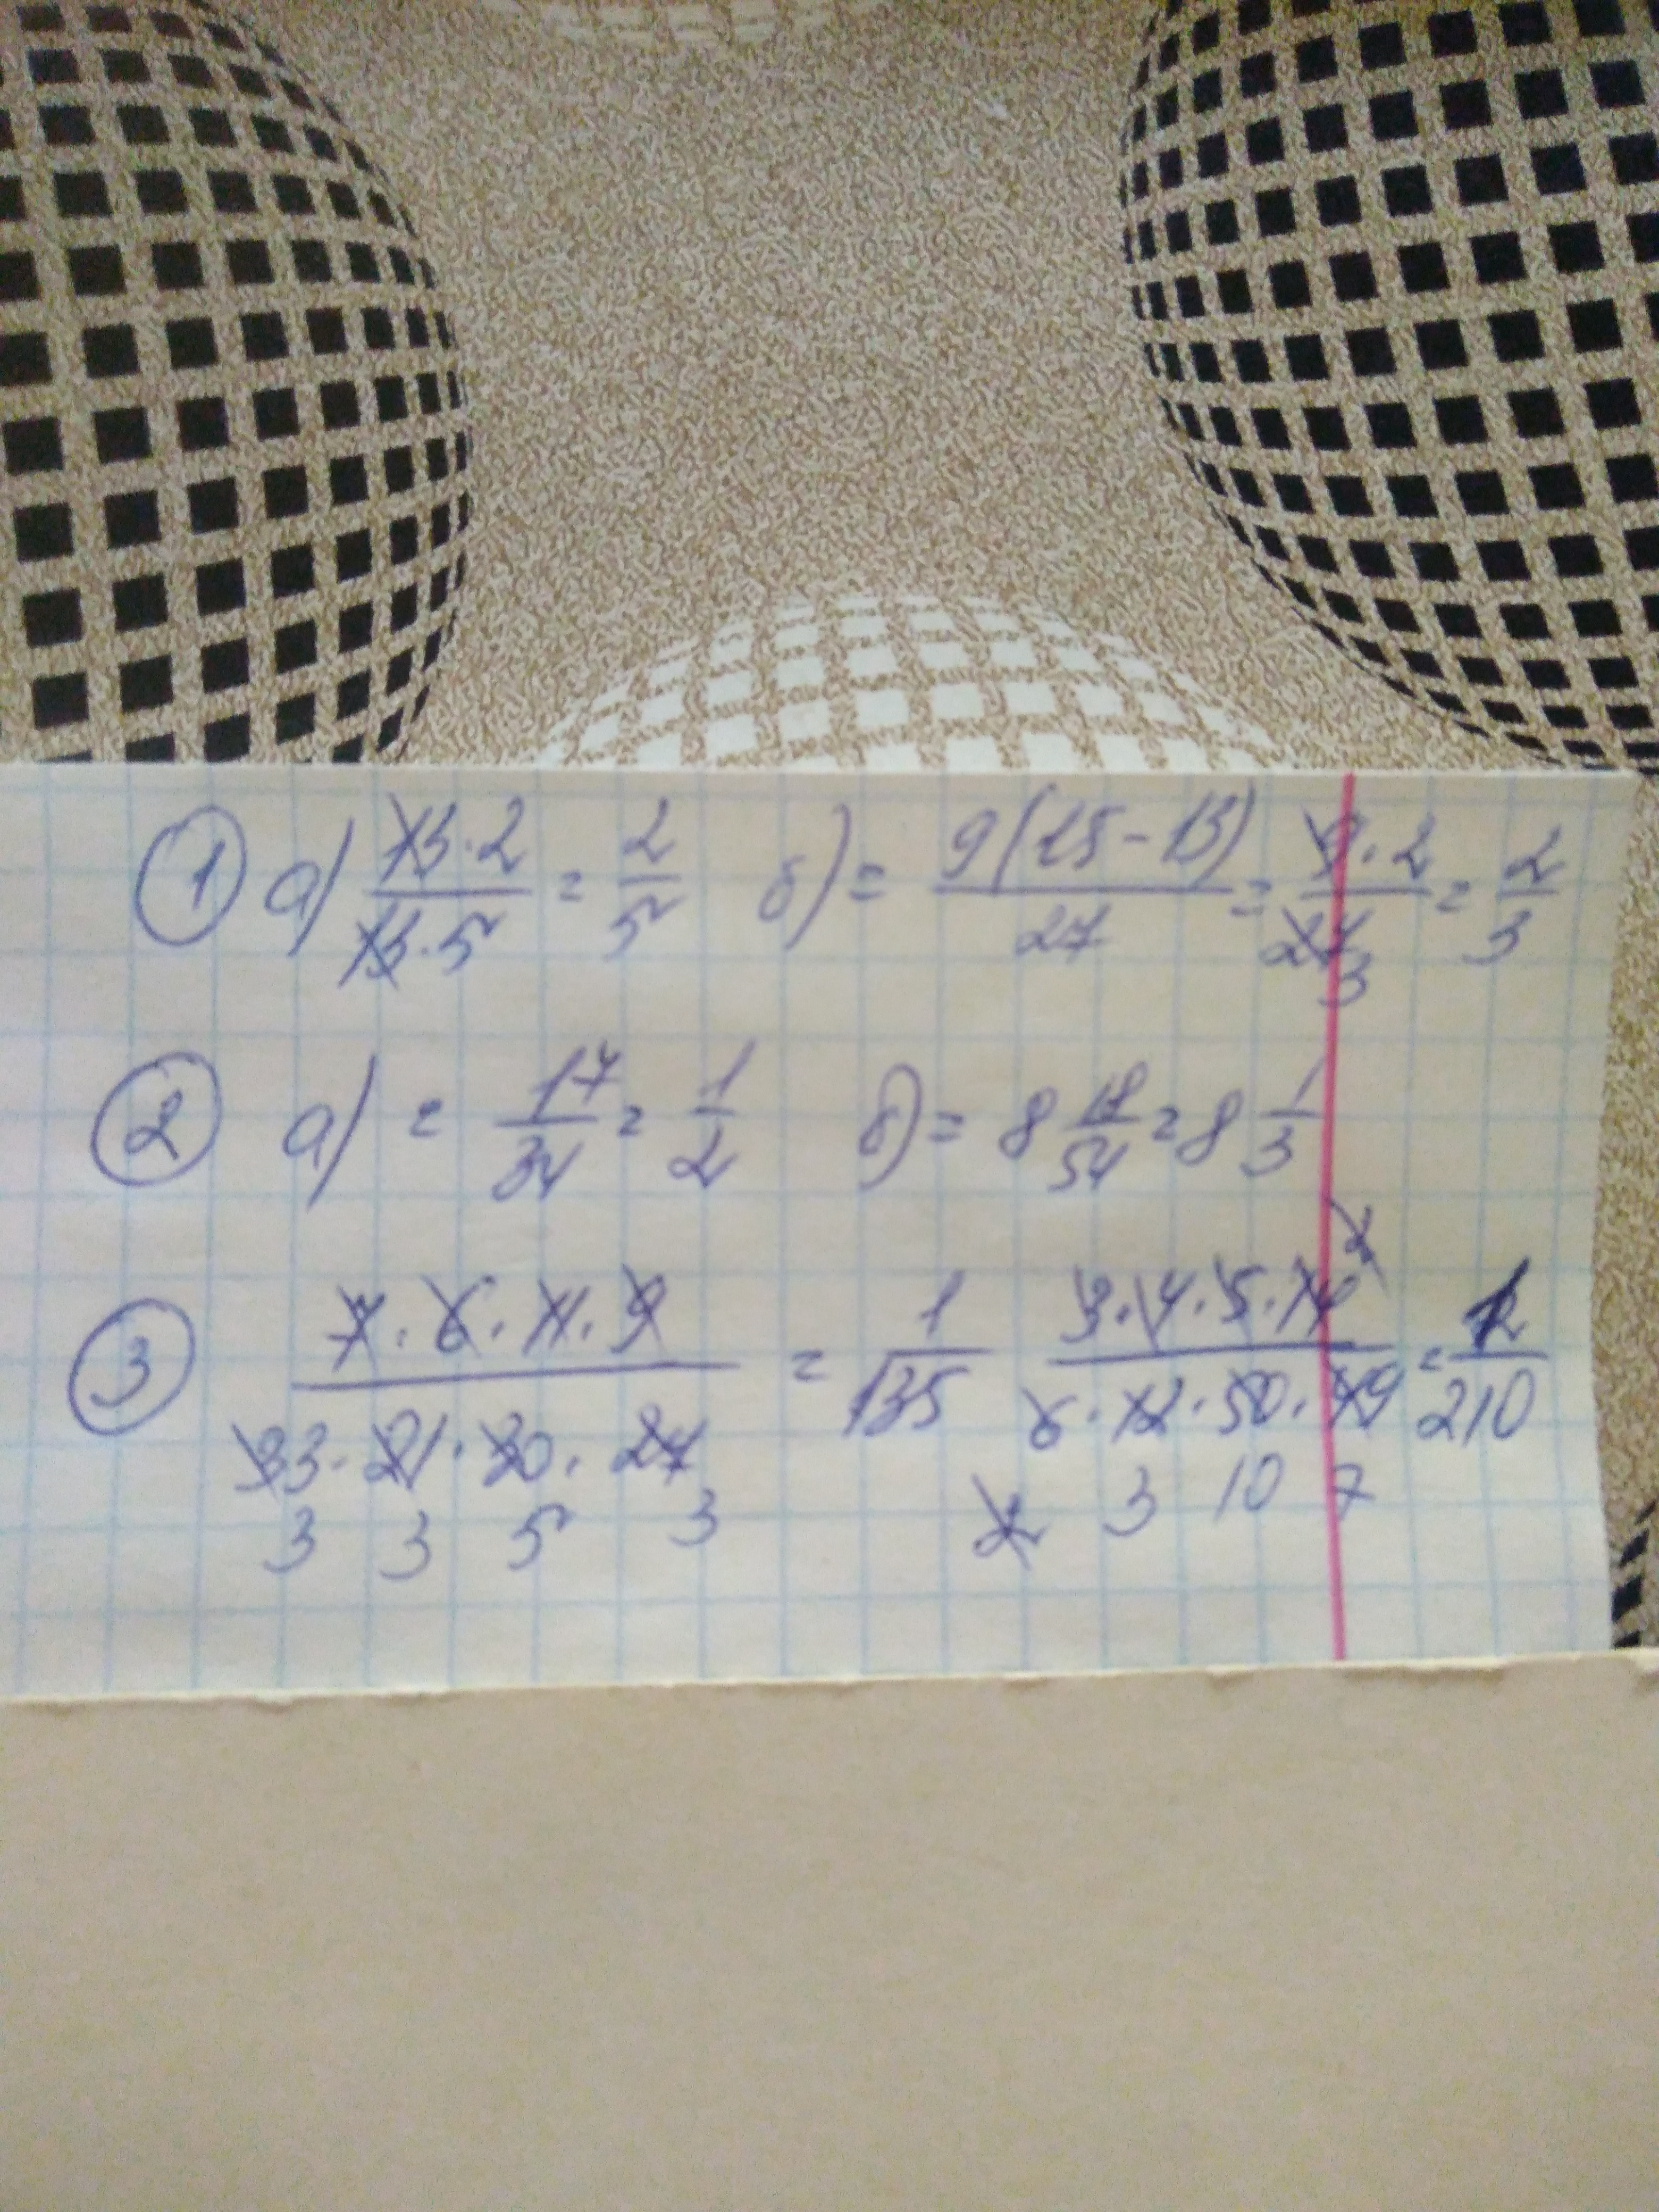 ① а) 13·2/13·5 = 2/5 б) = 9(15-13)/27 = 9·2/27 = 2/3
3
② а) = 17/34 = 1/2 б) = 8 18/54 = 8 1/3
③ 7·6·11·9/33·21·30·27 = 1/135 3·4·5·14/6·12·50·49 = 1/210
2
3 3 5 3 2 3 10 7